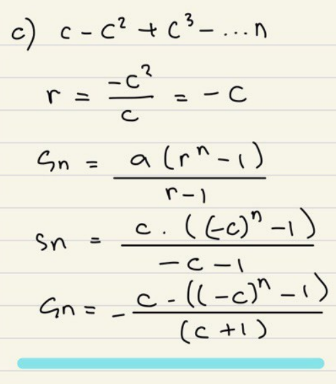 c) c - c² + c³ - ... n
r = -c²/c = -c
Sn = a(rⁿ-1)/r-1
Sn = c. ((-c)ⁿ-1)/-c-1
Sn = - c-((-c)ⁿ-1)/(c+1)